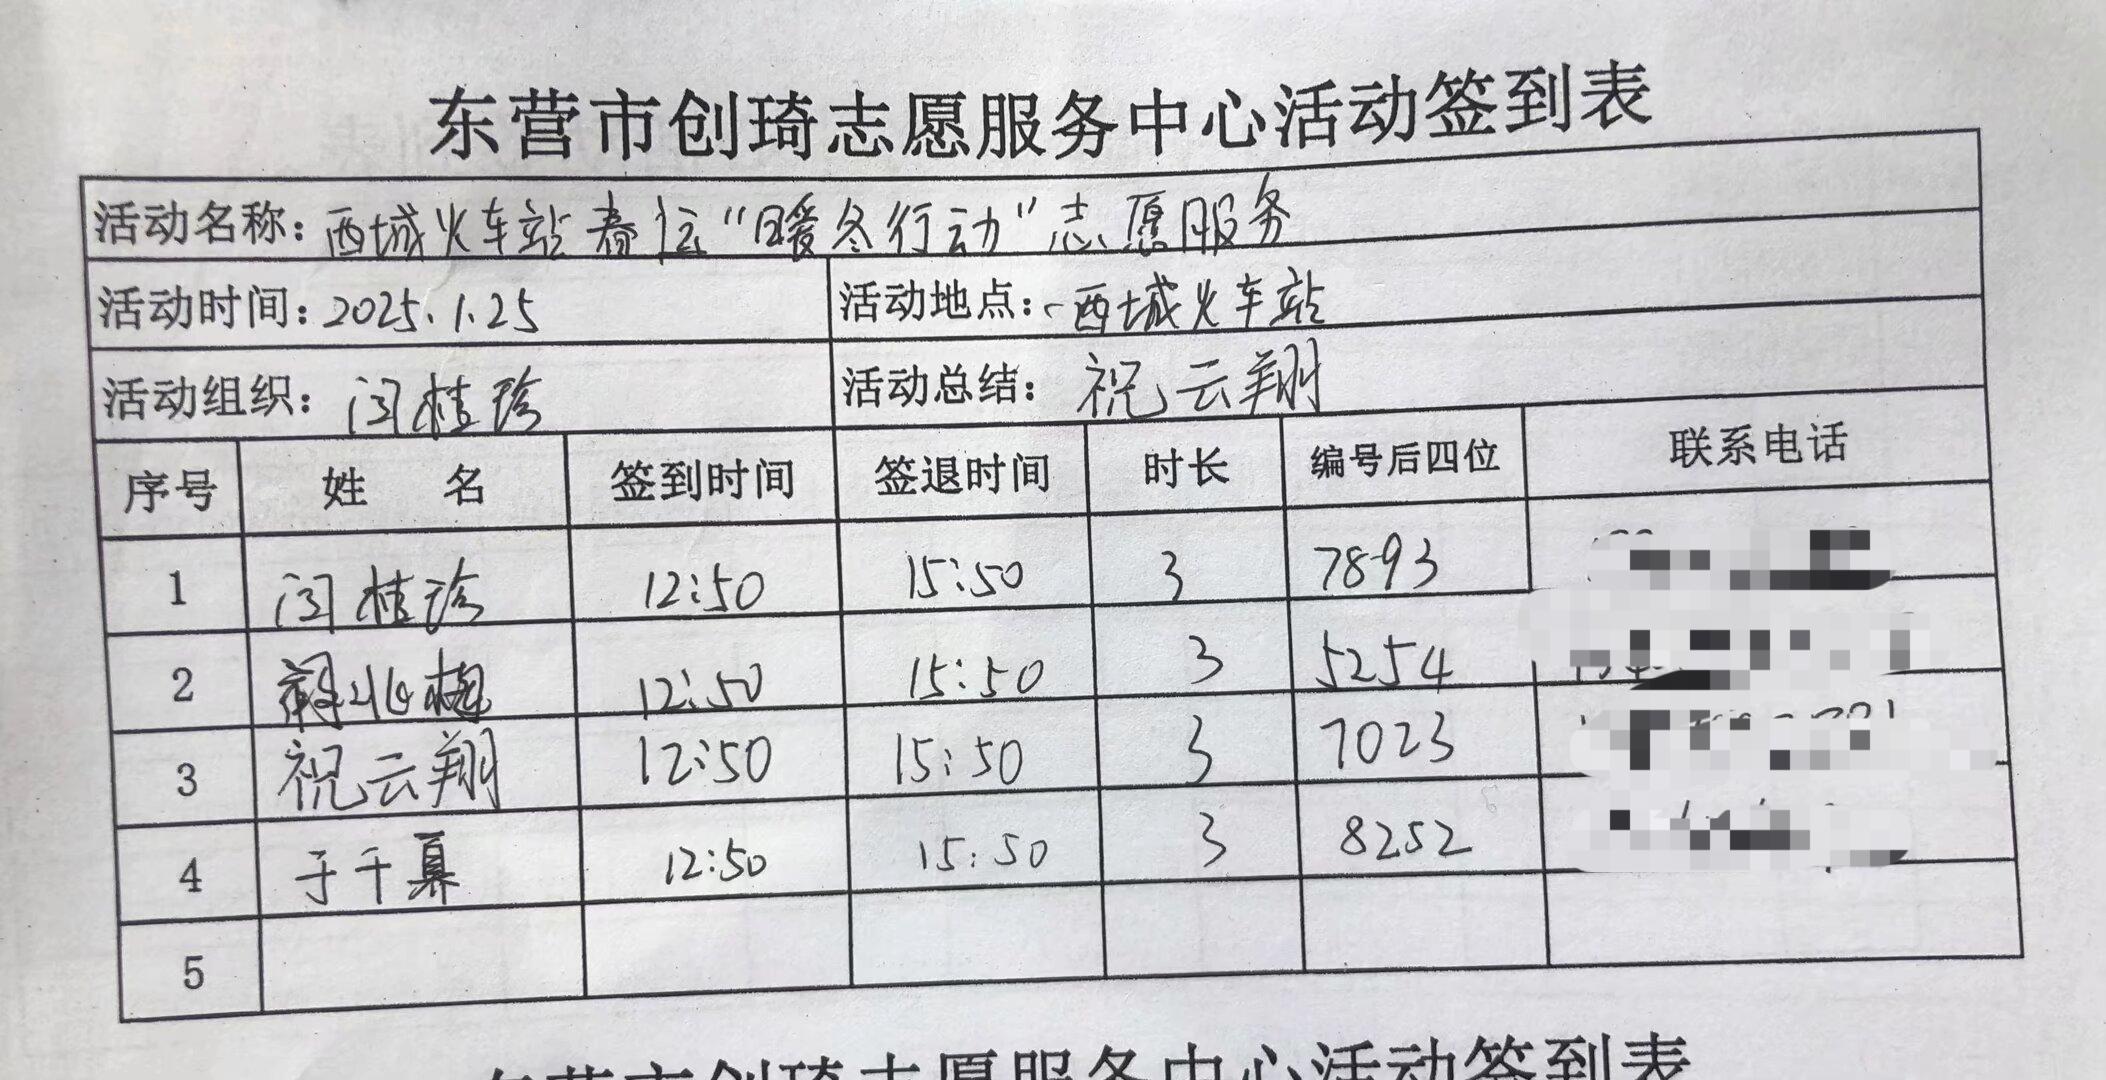 东营市创琦志愿服务中心活动签到表
活动名称：西城火车站春运“暖冬行动”志愿服务
活动时间：2025.1.25 活动地点：西城火车站
活动组织：闫桂珍 活动总结：祝云翔
序号 姓 名 签到时间 签退时间 时长 编号后四位 联系电话
1 闫桂珍 12:50 15:50 3 7893
2 12:50 15:50 3 5254
3 祝云翔 12:50 15:50 3 7023
4 于千 12:50 15:50 3 8252
5
东营市创琦志愿服务中心活动签到表